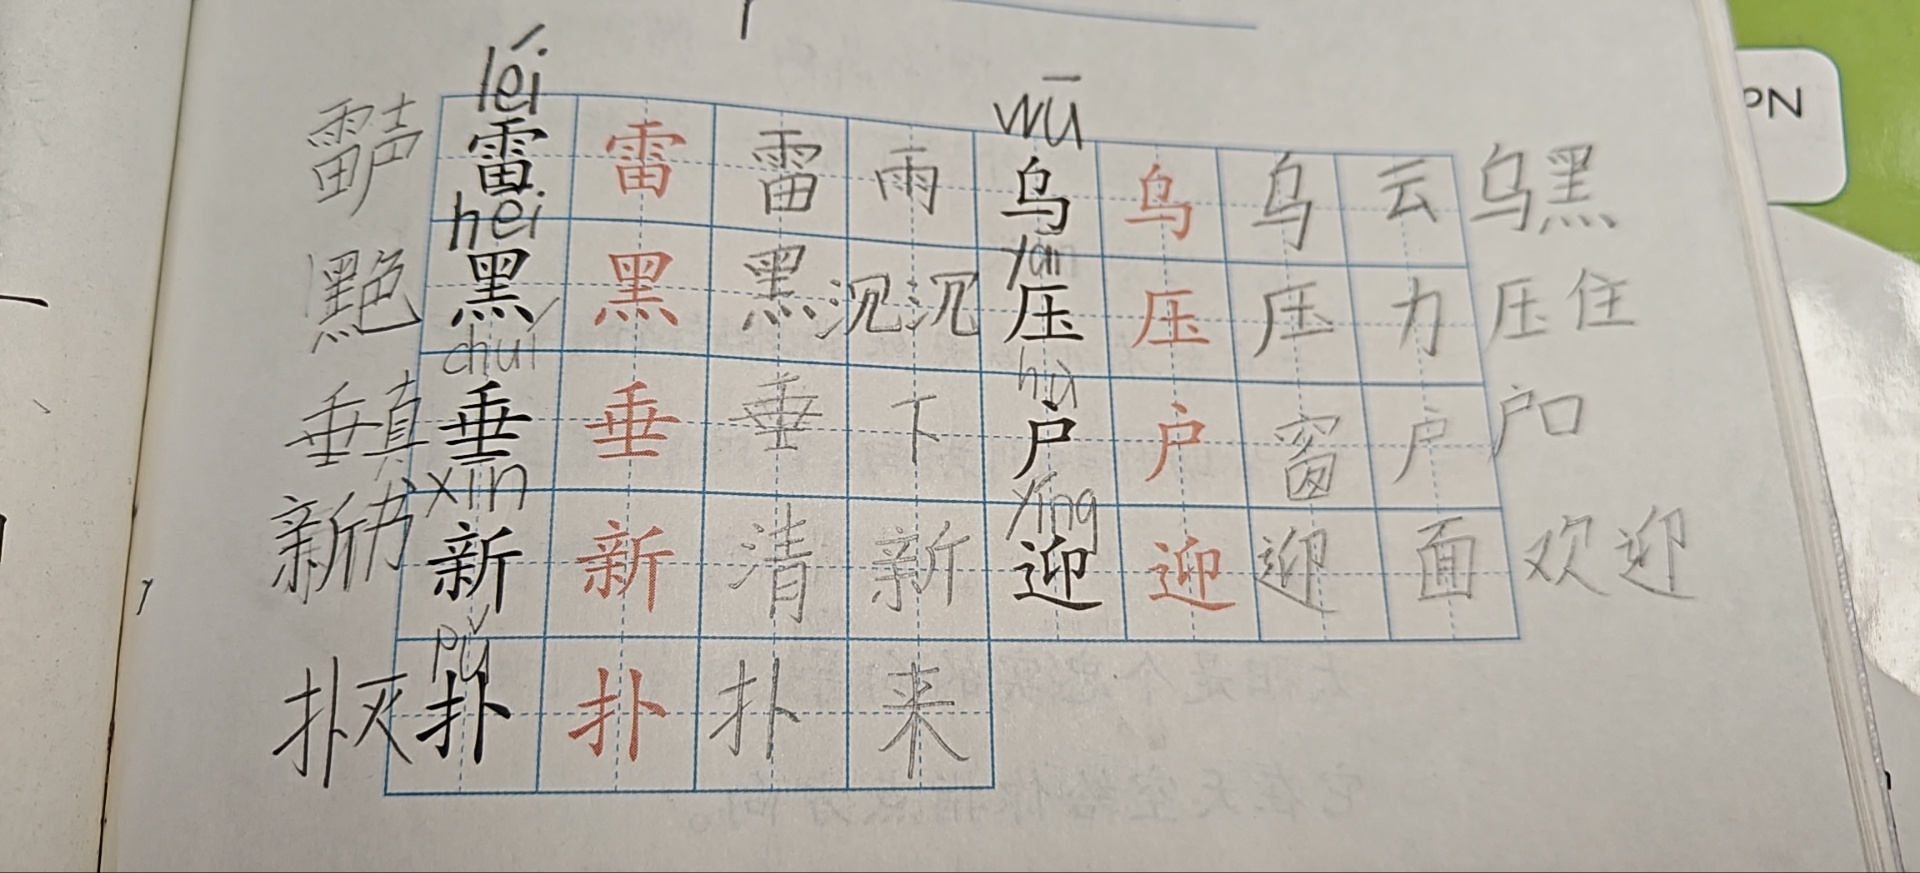 léi wū
雷声 雷 雷 雷 雨 乌 乌 乌 云 乌黑
hei yā
黑色 黑 黑 黑 沉沉 压 压 压 力 压住
chuí hù
垂直 垂 垂 垂 下 户 户 窗 户 户口
xīn yíng
新书 新 新 清 新 迎 迎 迎 面 欢迎
pǔ
扑灭 扑 扑 扑 来
PN